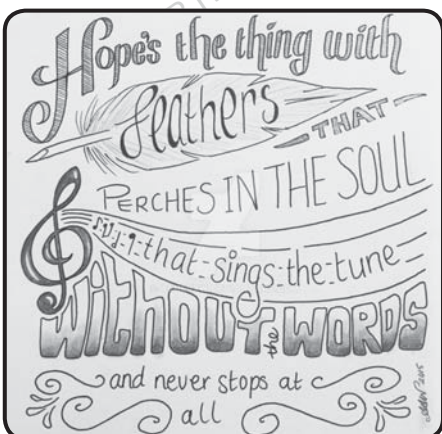 Hope's the thing with
feathers
THAT
PERCHES IN THE SOUL
that sings the tune
WithOUT the WORDS
and never stops at
all